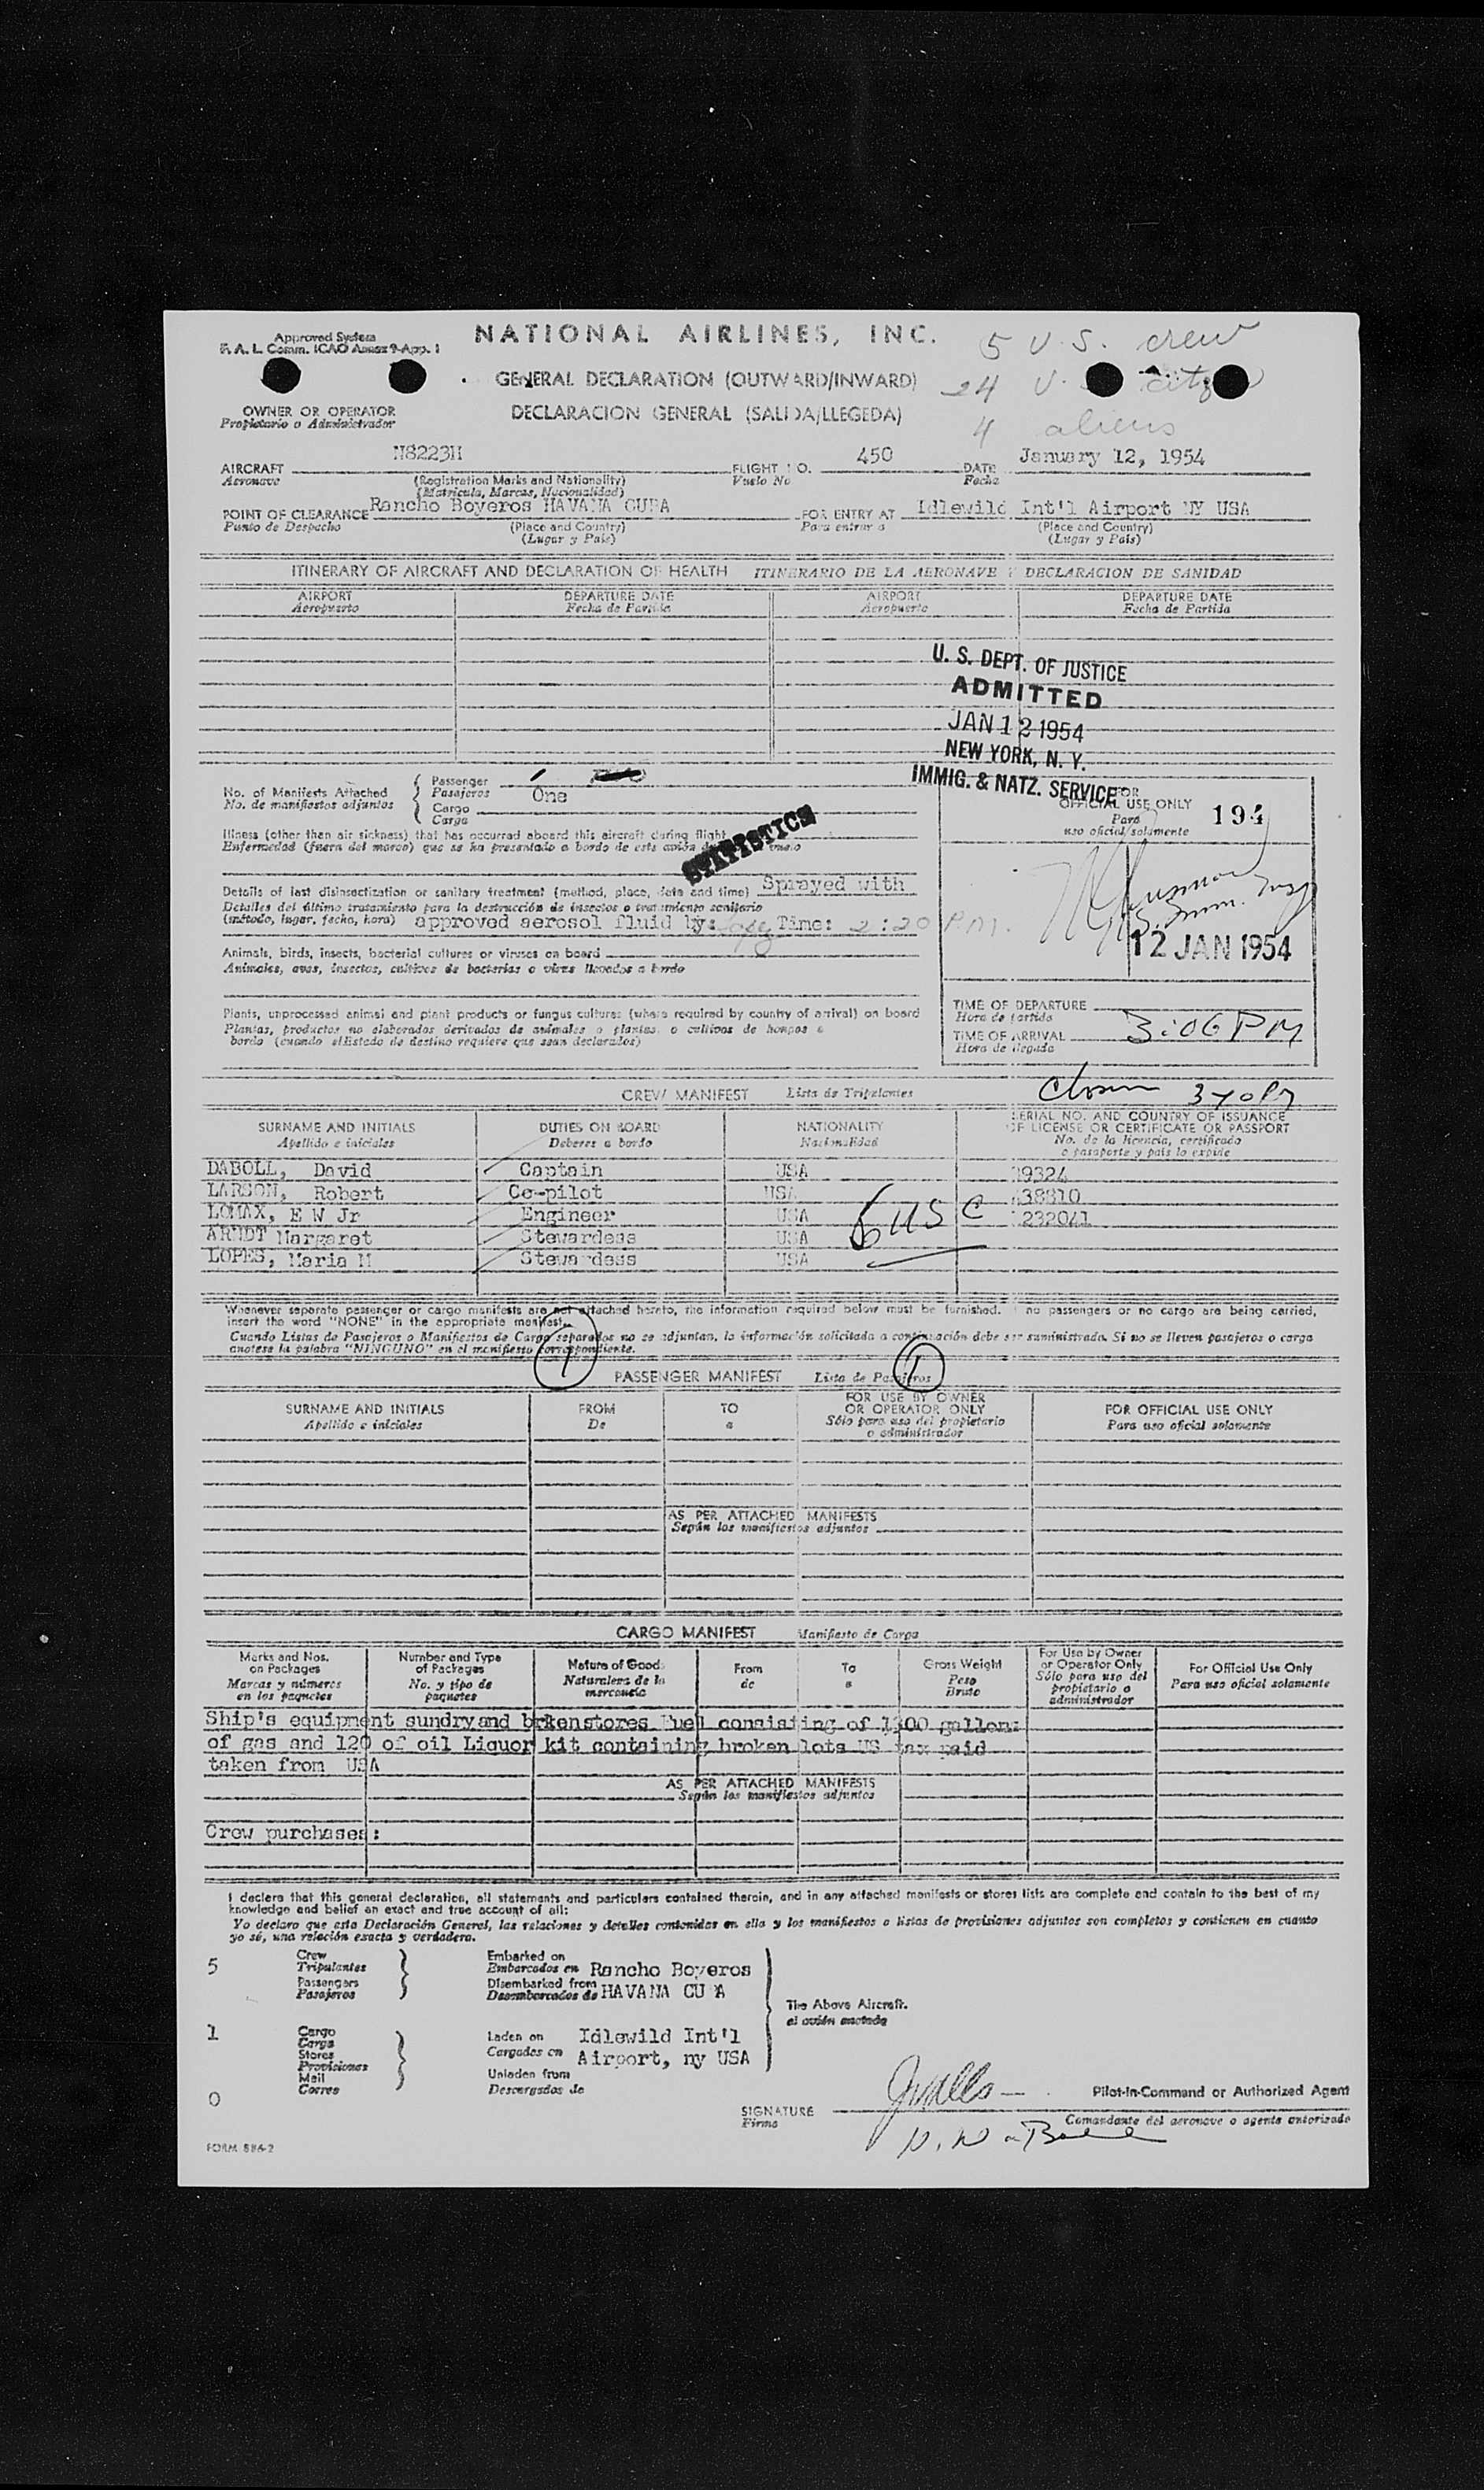 Approved System
F. A. L. Comm. ICAO Annex 9-App. 1
NATIONAL AIRLINES, INC.
5 U.S. crew
GENERAL DECLARATION (OUTWARD/INWARD)
24 U. citz
OWNER OR OPERATOR
Propietario o Administrador
DECLARACION GENERAL (SALIDA/LLEGEDA)
4 aliens
AIRCRAFT N8223H FLIGHT NO. 450 DATE January 12, 1954
Aeronave (Registration Marks and Nationality) Vuelo No Fecha
(Matricula, Marcas, Nacionalidad)
POINT OF CLEARANCE Rancho Boyeros HAVANA CUBA FOR ENTRY AT Idlewild Int'l Airport NY USA
Punto de Despacho (Place and Country) Para entrar a (Place and Country)
(Lugar y Pais) (Lugar y Pais)
ITINERARY OF AIRCRAFT AND DECLARATION OF HEALTH ITINERARIO DE LA AERONAVE Y DECLARACION DE SANIDAD
AIRPORT DEPARTURE DATE AIRPORT DEPARTURE DATE
Aeropuerto Fecha de Partida Aeropuerto Fecha de Partida
U. S. DEPT. OF JUSTICE
ADMITTED
JAN 12 1954
NEW YORK, N. Y.
IMMIG. & NATZ. SERVICE
No. of Manifests Attached
No. de manifiestos adjuntos
Passenger
Pasajeros One
Cargo
Carga
FOR
OFFICIAL USE ONLY 194
Para
uso oficial solamente
Illness (other than air sickness) that has occurred aboard this aircraft during flight
Enfermedad (fuera del mareo) que se ha presentado a bordo de este avión vuelo
STATISTICS
Details of last disinsectization or sanitary treatment (method, place, date and time) Sprayed with
Detalles del último tratamiento para la destrucción de insectos o tratamiento sanitario
(método, lugar, fecha, hora) approved aerosol fluid by: Time: 2:20 P.M.
Imm. Insp
12 JAN 1954
Animals, birds, insects, bacterial cultures or viruses on board
Animales, aves, insectos, cultivos de bacterias o virus llevados a bordo
Plants, unprocessed animal and plant products or fungus cultures (where required by country of arrival) on board
Plantas, productos no elaborados derivados de animales o plantas, o cultivos de hongos a
bordo (cuando el Estado de destino requiere que sean declarados)
TIME OF DEPARTURE
Hora de partida
TIME OF ARRIVAL 3:06 PM
Hora de llegada
CREW MANIFEST Lista de Tripulantes
SURNAME AND INITIALS DUTIES ON BOARD NATIONALITY SERIAL NO. AND COUNTRY OF ISSUANCE
OF LICENSE OR CERTIFICATE OR PASSPORT
Apellido e iniciales Deberes a bordo Nacionalidad No. de la licencia, certificado
o pasaporte y pais lo expide
DABOLL, David Captain USA 39324
LARSON, Robert Co-pilot USA 438810
LOMAX, E W Jr Engineer USA 1232041
ARNDT Margaret Stewardess USA
LOPES, Maria M Stewardess USA
6 USC
Whenever separate passenger or cargo manifests are not attached hereto, the information required below must be furnished. If no passengers or no cargo are being carried,
insert the word "NONE" in the appropriate manifest.
Cuando Listas de Pasajeros o Manifiestos de Carga separados no se adjuntan, la información solicitada a continuación debe ser suministrada. Si no se lleven pasajeros o carga
anotese la palabra "NINGUNO" en el manifiesto correspondiente.
1 1
PASSENGER MANIFEST Lista de Pasajeros
SURNAME AND INITIALS FROM TO FOR USE BY OWNER
OR OPERATOR ONLY FOR OFFICIAL USE ONLY
Apellido e iniciales De a Sólo para uso del propietario
o administrador Para uso oficial solamente
AS PER ATTACHED MANIFESTS
Según los manifiestos adjuntos
CARGO MANIFEST Manifiesto de Carga
Marks and Nos.
on Packages
Marcas y números
en los paquetes
Number and Type
of Packages
No. y tipo de
paquetes
Nature of Goods
Naturaleza de la
mercancia
From
de
To
a
Gross Weight
Peso
Bruto
For Use by Owner
or Operator Only
Sólo para uso del
propietario o
administrador
For Official Use Only
Para uso oficial solamente
Ship's equipment sundry and brkenstores Fuel consisting of 1300 gallons
of gas and 120 of oil Liquor kit containing broken lots US tax paid
taken from USA
AS PER ATTACHED MANIFESTS
Según los manifiestos adjuntos
Crew purchases:
I declare that this general declaration, all statements and particulars contained therein, and in any attached manifests or stores lists are complete and contain to the best of my
knowledge and belief an exact and true account of all:
Yo declaro que esta Declaración General, las relaciones y detalles contenidas en ella y los manifiestos o listas de provisiones adjuntos son completos y contienen en cuanto
yo sé, una relación exacta y verdadera.
5 Crew
Tripulantes
Passengers
Pasajeros
Embarked on
Embarcados en Rancho Boyeros
Disembarked from
Desembarcados de HAVANA CU A
The Above Aircraft.
el avión anotado
1 Cargo
Carga
Stores
Provisiones
Mail
0 Correo
Laden on Idlewild Int'l
Cargados en Airport, ny USA
Unladen from
Descargados de
SIGNATURE
Firma
Pilot-in-Command or Authorized Agent
Comandante del aeronave o agente autorizado
FORM 886-2